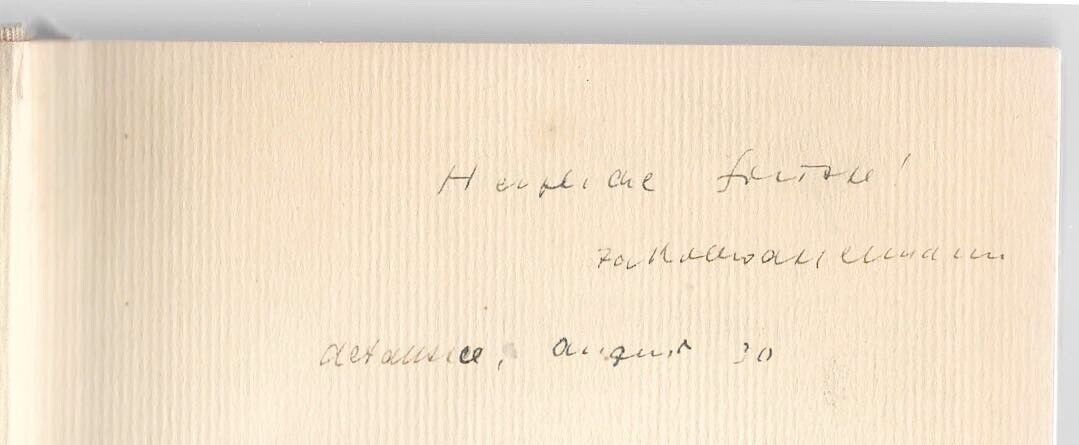 Herzliche Grüße!
Jakob Wassermann
altaussee, august 30